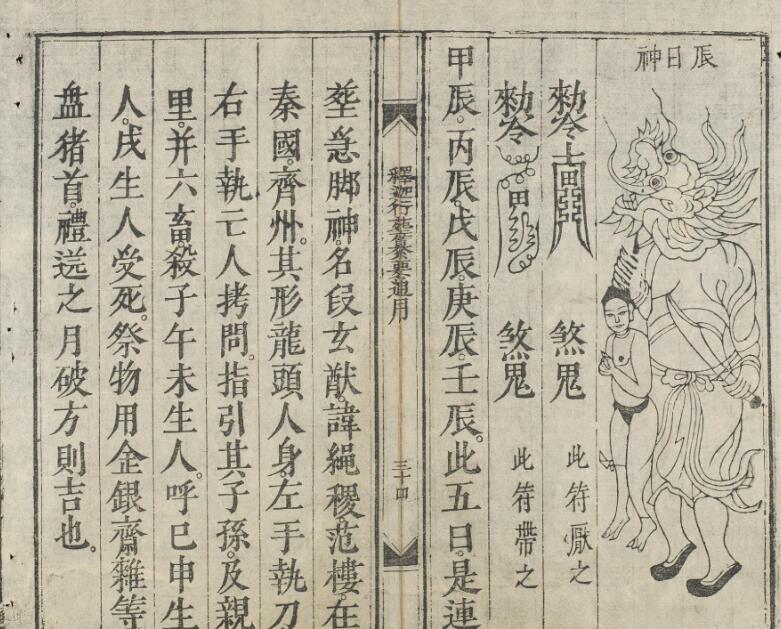 辰日神
勅令 煞鬼 此符厭之
勅令 煞鬼 此符帶之
甲辰。丙辰。戊辰。庚辰。壬辰。此五日。是連
釋迦行 要通用 三十四
塟急脚神。名叚玄猷。諱繩稷。范樓。在
秦國。齊州。其形龍頭人身。左手執刀
右手執亡人拷問。指引其子孫。及親
里。并六畜。殺子午未生人。呼巳申生
人。戌生人受死。祭物用金銀齋雜等
盘猪首。禮送之月破方則吉也。